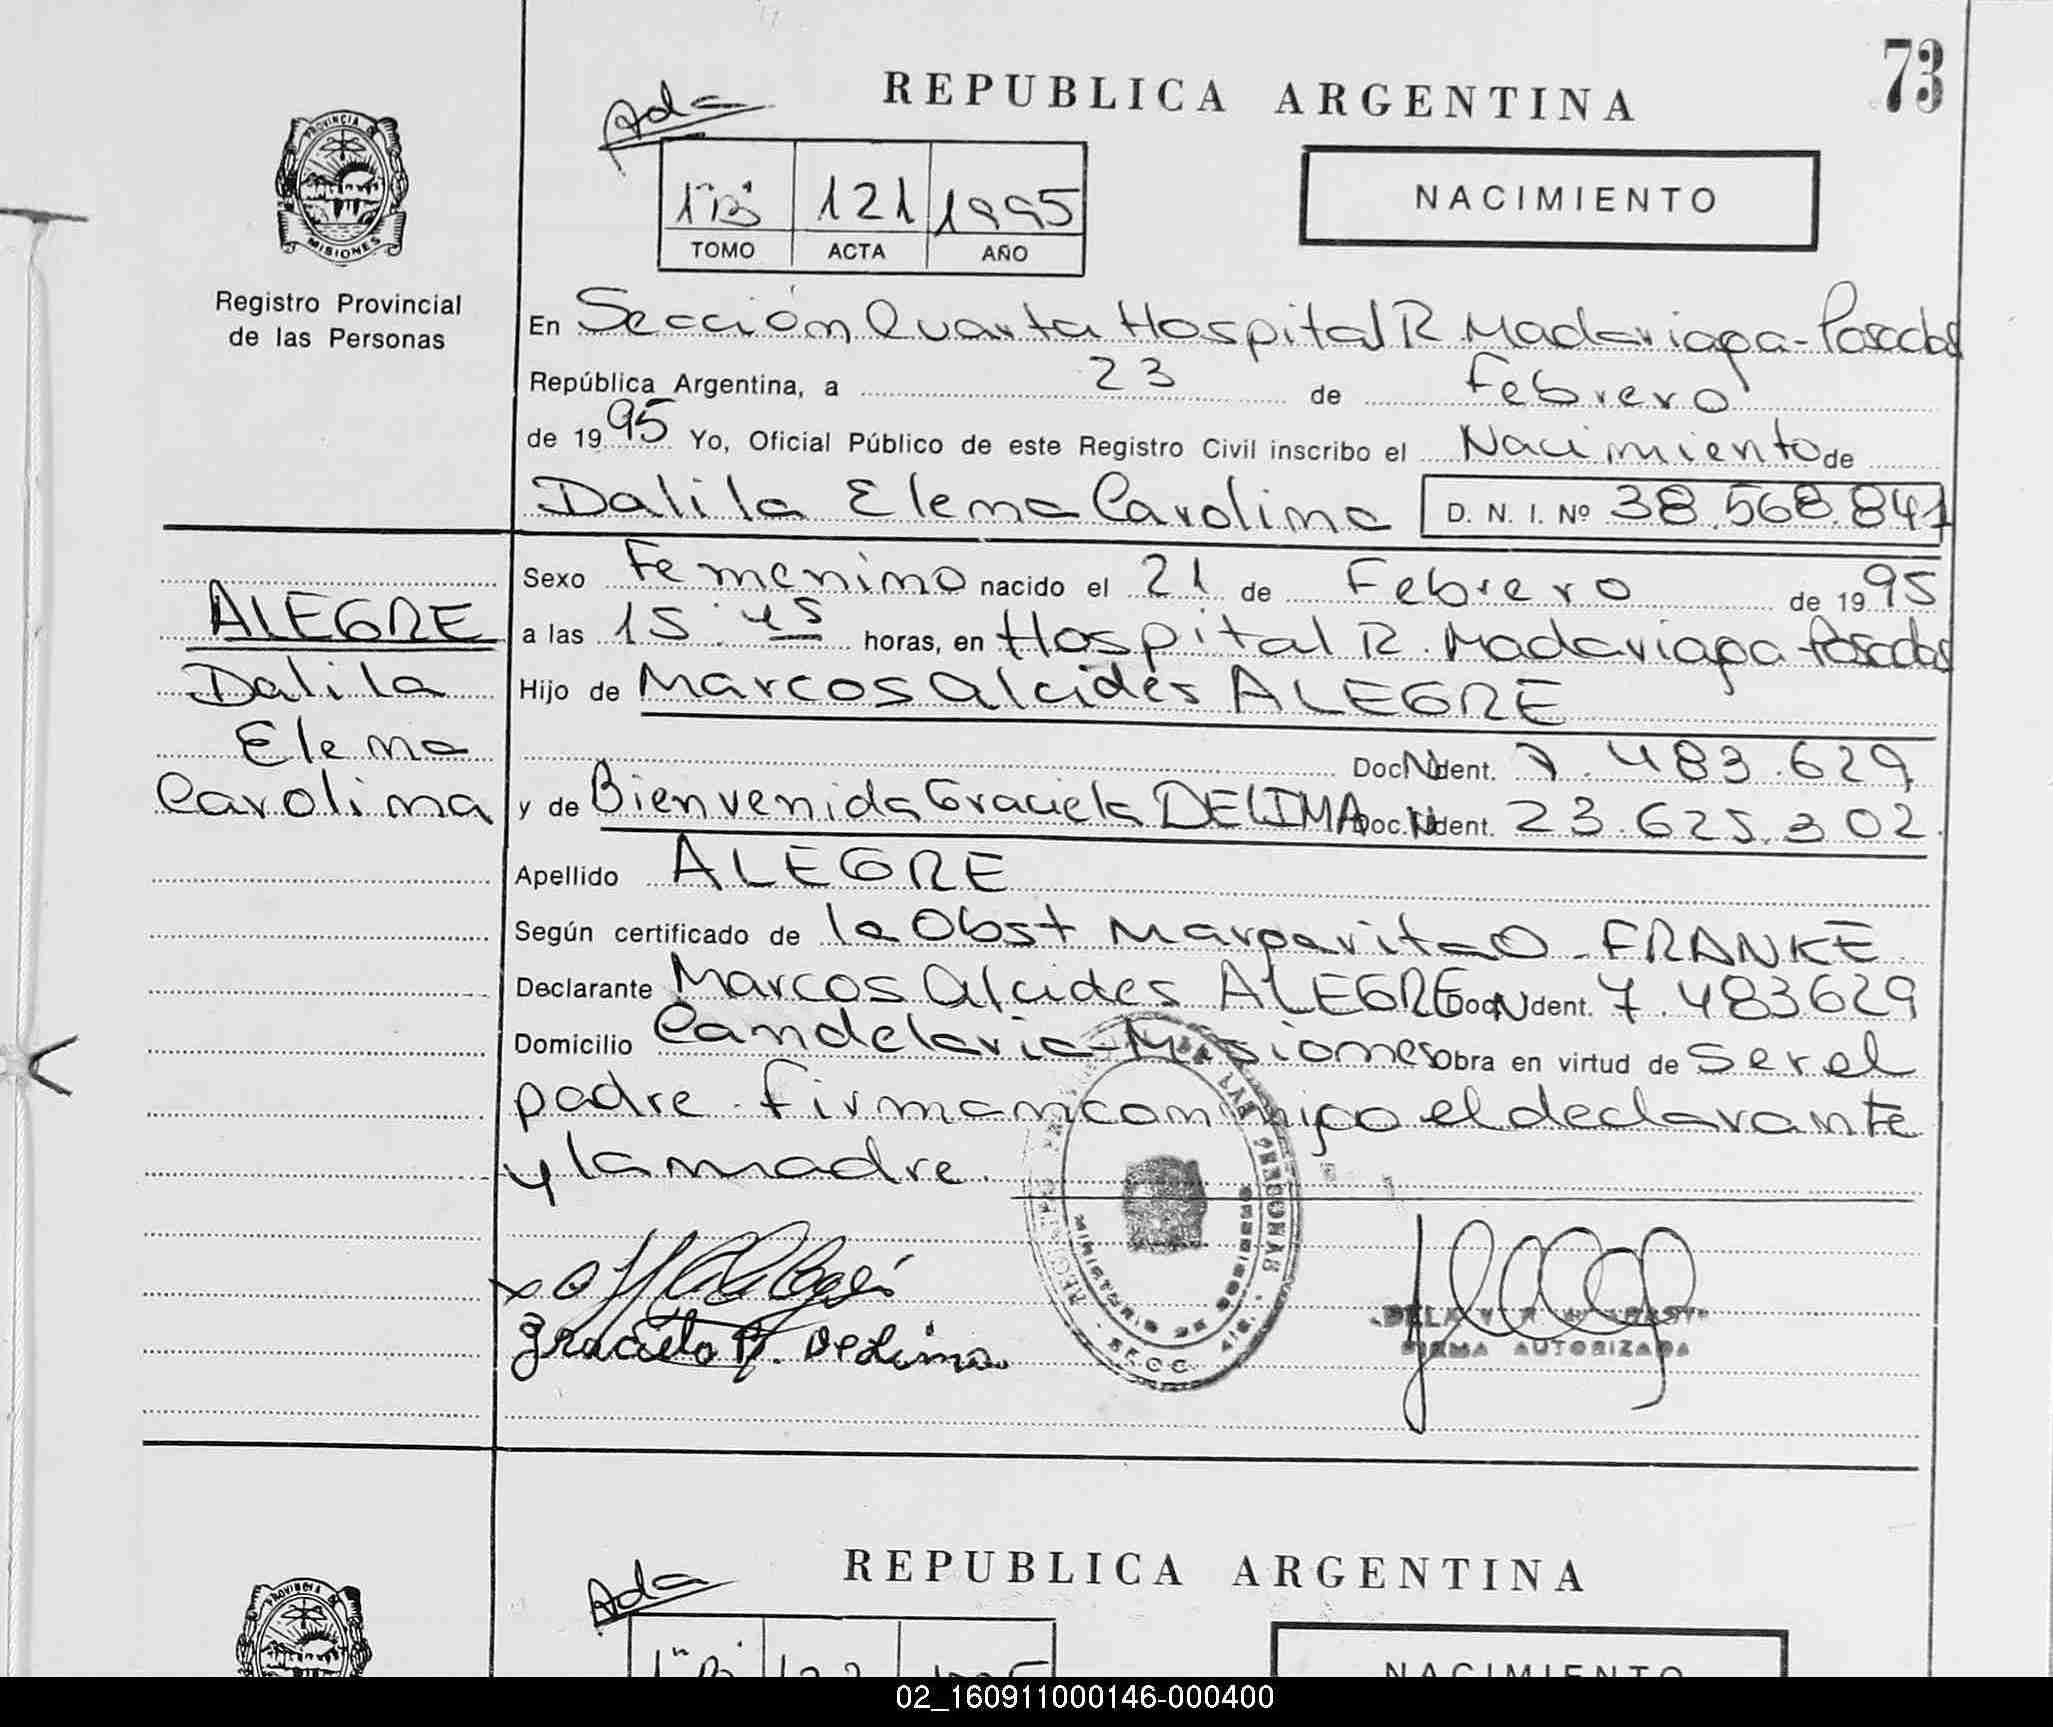 73
REPUBLICA ARGENTINA
Ada
PROVINCIA DE
MISIONES
Registro Provincial
de las Personas
1º"B" 121 1995
TOMO ACTA AÑO
NACIMIENTO
En Sección Cuarta Hospital R. Madariaga - Posadas
República Argentina, a 23 de Febrero
de 1995 Yo, Oficial Público de este Registro Civil inscribo el Nacimiento de
Dalila Elena Carolina D. N. I. Nº 38.568.841
ALEGRE
Dalila
Elena
Carolina
Sexo Femenino nacido el 21 de Febrero de 1995
a las 15.45 horas, en Hospital R. Madariaga - Posadas
Hijo de Marcos Alcides ALEGRE
Doc. Ident. 7.483.629
y de Bienvenida Graciela DELIMA Doc. Ident. 23.625.302.
Apellido ALEGRE
Según certificado de la Obst Margarita O. FRANKE
Declarante Marcos Alcides ALEGRE Doc. Ident. 7.483629
Domicilio Candelaria - Misiones Obra en virtud de Ser el
padre. Firman conmigo el declarante
y la madre.
Graciela B. DeLima
FIRMA AUTORIZADA
REPUBLICA ARGENTINA
Ada
PROVINCIA DE
NACIMIENTO
02_160911000146-000400